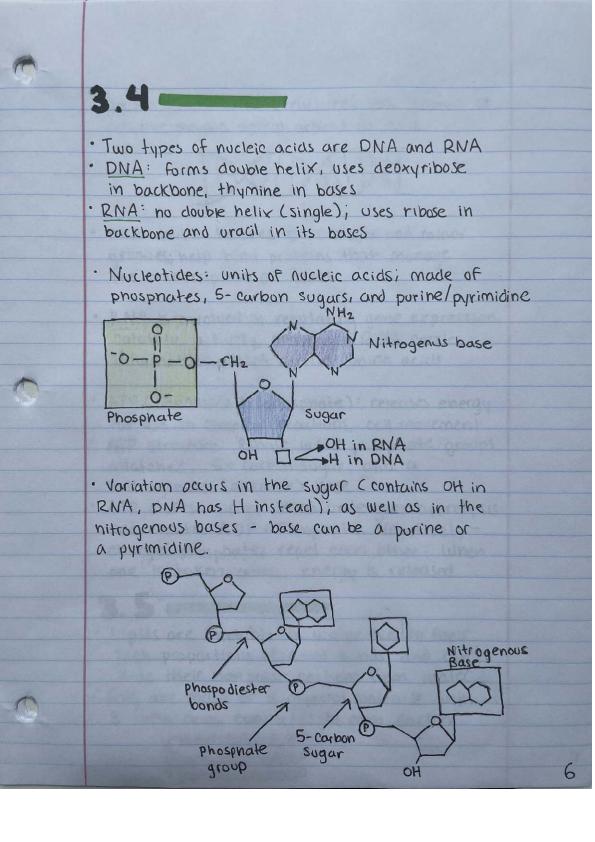 3.4
• Two types of nucleic acids are DNA and RNA
• DNA: forms double helix, uses deoxyribose
in backbone, thymine in bases
• RNA: no double helix (single); uses ribose in
backbone and uracil in its bases
• Nucleotides: units of nucleic acids; made of
phosphates, 5-carbon sugars, and purine/pyrimidine
NH2
N
N
Nitrogenus base
O
-O-P-O-CH2
O-
N
N
O
Phosphate
Sugar
OH
OH in RNA
H in DNA
• Variation occurs in the sugar (contains OH in
RNA, DNA has H instead); as well as in the
nitrogenous bases - base can be a purine or
a pyrimidine.
P
O
P
O
Nitrogenous
Base
O
Phospodiester
bonds
P
5-carbon
sugar
P
O
Phosphate
group
OH
6